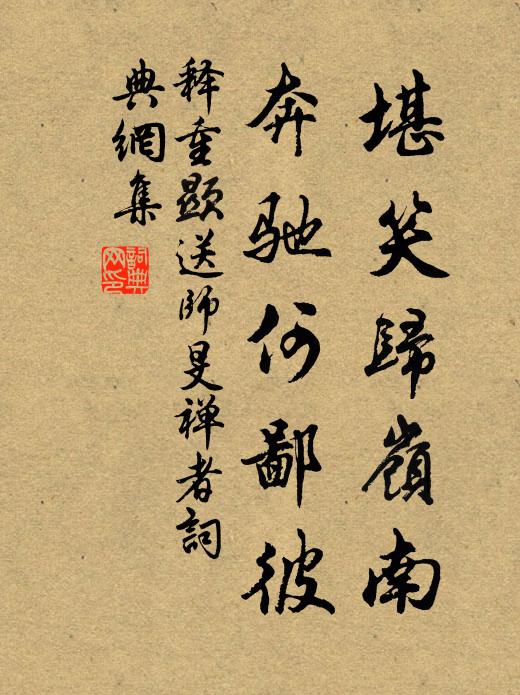 堪笑歸嶺南
奔馳何鄙彼
释重顯送師旻禅者詞
典網集
詞典网印